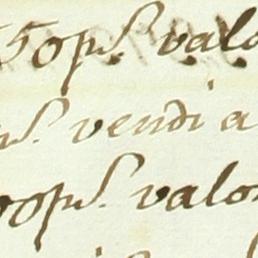 50 ps. valo
ps. vendi a
00 ps. valo